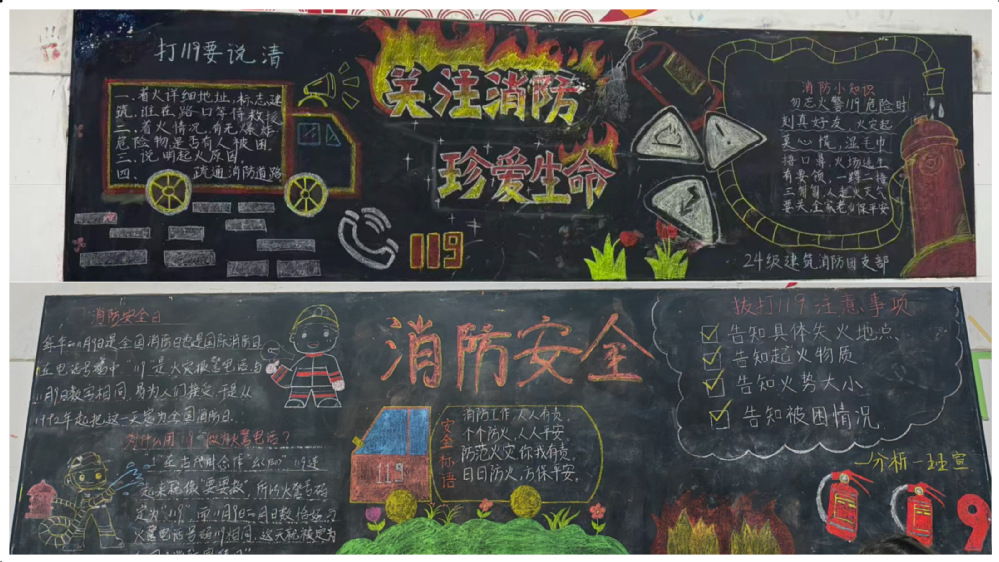 打119要说清
一、着火详细地址,标志建
筑,谁在路口等待救援
二、着火情况,有无爆炸
危险物是否有人被困。
三、说明起火原因。
四、 疏通消防道路
关注消防
珍爱生命
119
消防小知识
勿忘火警119危险时
刻真好友,火灾起
莫心慌,湿毛巾
捂口鼻,火场逃生
有要领,一蹲二
要关,全家老 保平安
24级建筑消防团支部
消防安全日
每年 11月9日是全国消防日也是国际消防日
在电话号码中“119”是火灾报警电话,与
11月9日数字相同,易为人们接受,于是从
1992年起把这一天定为全国消防日.
为什么用“119”做火警电话?
“1”在古代时念作“幺” 119连
起来就像“要要救”,所以火警号码
定为“119”,而11月9日 月日数恰好与
火警电话号码119相同,这天就被定为
消防安全
119
安全标语
消防工作,人人有责。
个个防火,人人平安
防范火灾,你我有责。
日日防火,方保平安。
拨打119注意事项
告知具体失火地点
告知起火物质
告知火势大小
告知被困情况
—分析一班宣
9